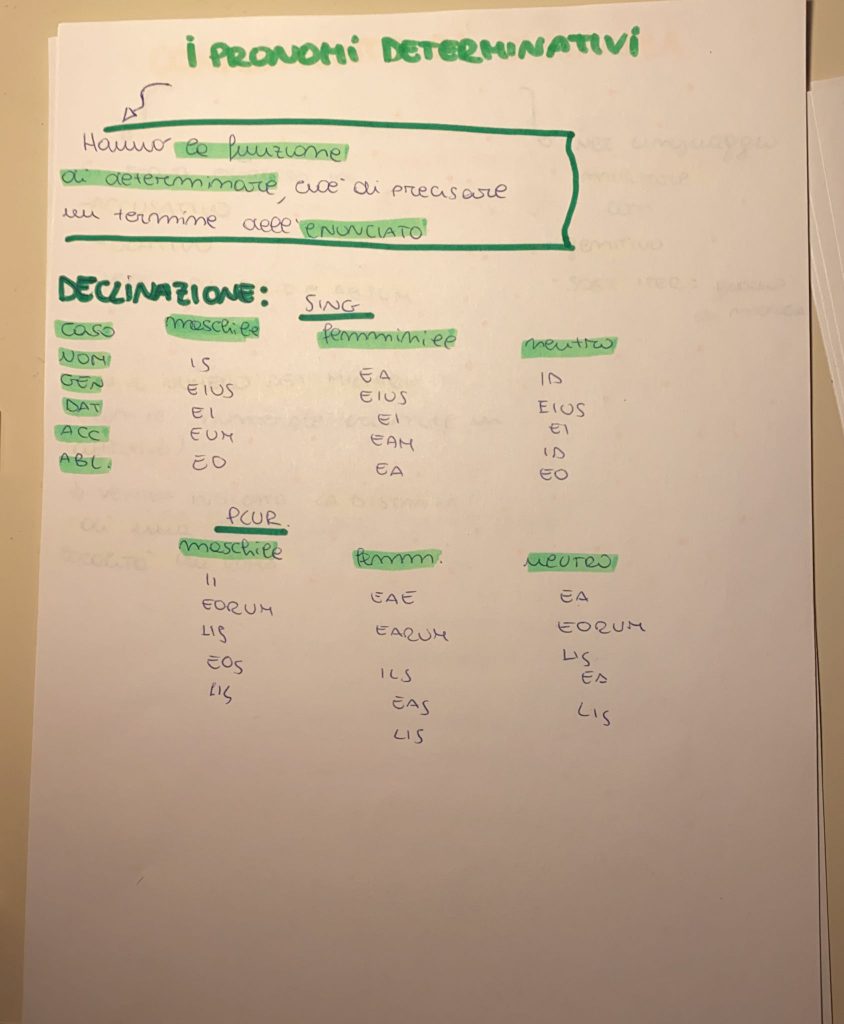 I PRONOMI DETERMINATIVI
Hanno la funzione
di determinare, cioè di precisare
un termine dell'ENUNCIATO
DECLINAZIONE:
SING
CASO maschile femminile neutro
NOM IS EA ID
GEN EIUS EIUS EIUS
DAT EI EI EI
ACC EUM EAM ID
ABL. EO EA EO
PLUR.
maschile femm. NEUTRO
II EAE EA
EORUM EARUM EORUM
IIS IIS IIS
EOS EAS EA
IIS IIS IIS